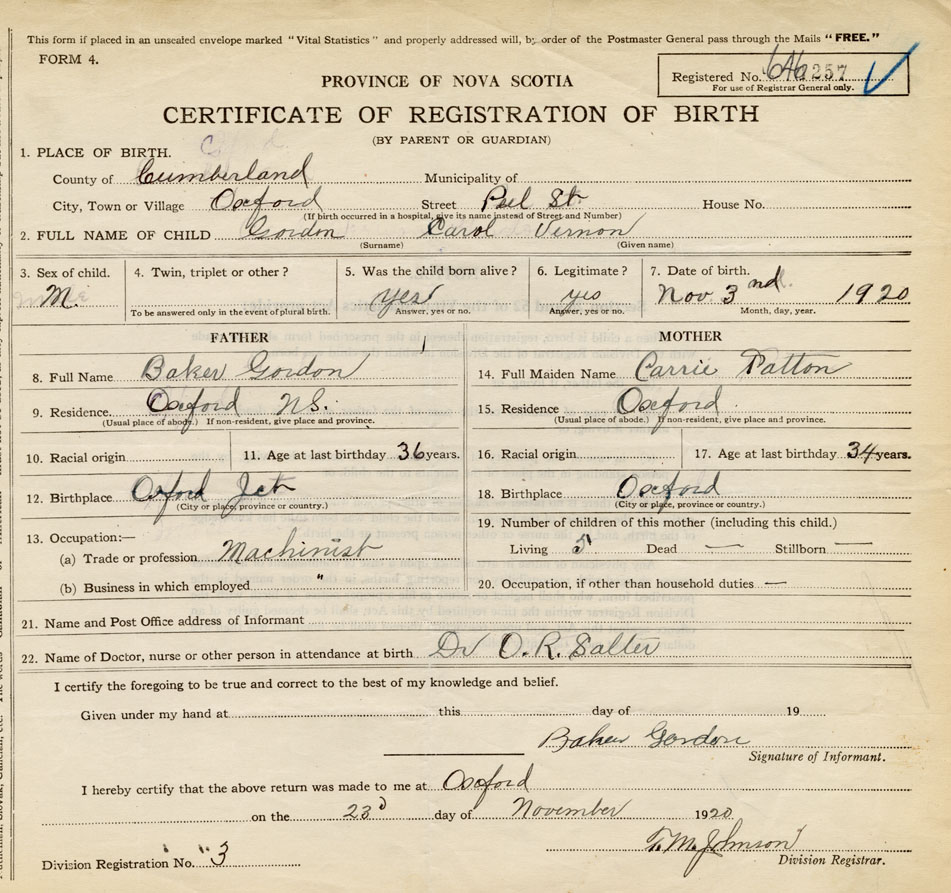 This form if placed in an unsealed envelope marked "Vital Statistics" and properly addressed will, by order of the Postmaster General pass through the Mails "FREE."
FORM 4.
Registered No. 257
For use of Registrar General only.
PROVINCE OF NOVA SCOTIA
CERTIFICATE OF REGISTRATION OF BIRTH
(BY PARENT OR GUARDIAN)
1. PLACE OF BIRTH.
County of Cumberland Municipality of
City, Town or Village Oxford Street Peel St. House No.
(If birth occurred in a hospital, give its name instead of Street and Number)
2. FULL NAME OF CHILD Gordon Carol Vernon
(Surname) (Given name)
3. Sex of child. 4. Twin, triplet or other? 5. Was the child born alive? 6. Legitimate? 7. Date of birth.
M. yes yes Nov 3nd. 1920
To be answered only in the event of plural birth. Answer, yes or no. Answer, yes or no. Month, day, year.
FATHER MOTHER
8. Full Name Baker Gordon 14. Full Maiden Name Carrie Patton
9. Residence Oxford N.S. 15. Residence Oxford
(Usual place of abode.) If non-resident, give place and province. (Usual place of abode.) If non-resident, give place and province.
10. Racial origin 11. Age at last birthday 36 years. 16. Racial origin 17. Age at last birthday 34 years.
12. Birthplace Oxford Jct 18. Birthplace Oxford
(City or place, province or country.) (City or place, province or country.)
13. Occupation:— 19. Number of children of this mother (including this child.)
(a) Trade or profession Machinist Living 5 Dead — Stillborn —
(b) Business in which employed " 20. Occupation, if other than household duties —
21. Name and Post Office address of Informant
22. Name of Doctor, nurse or other person in attendance at birth Dr O. R. Salter
I certify the foregoing to be true and correct to the best of my knowledge and belief.
Given under my hand at this day of 19
Baker Gordon
Signature of Informant.
I hereby certify that the above return was made to me at Oxford
on the 23d day of November 1920
T. M. Johnson
Division Registration No. 3 Division Registrar.